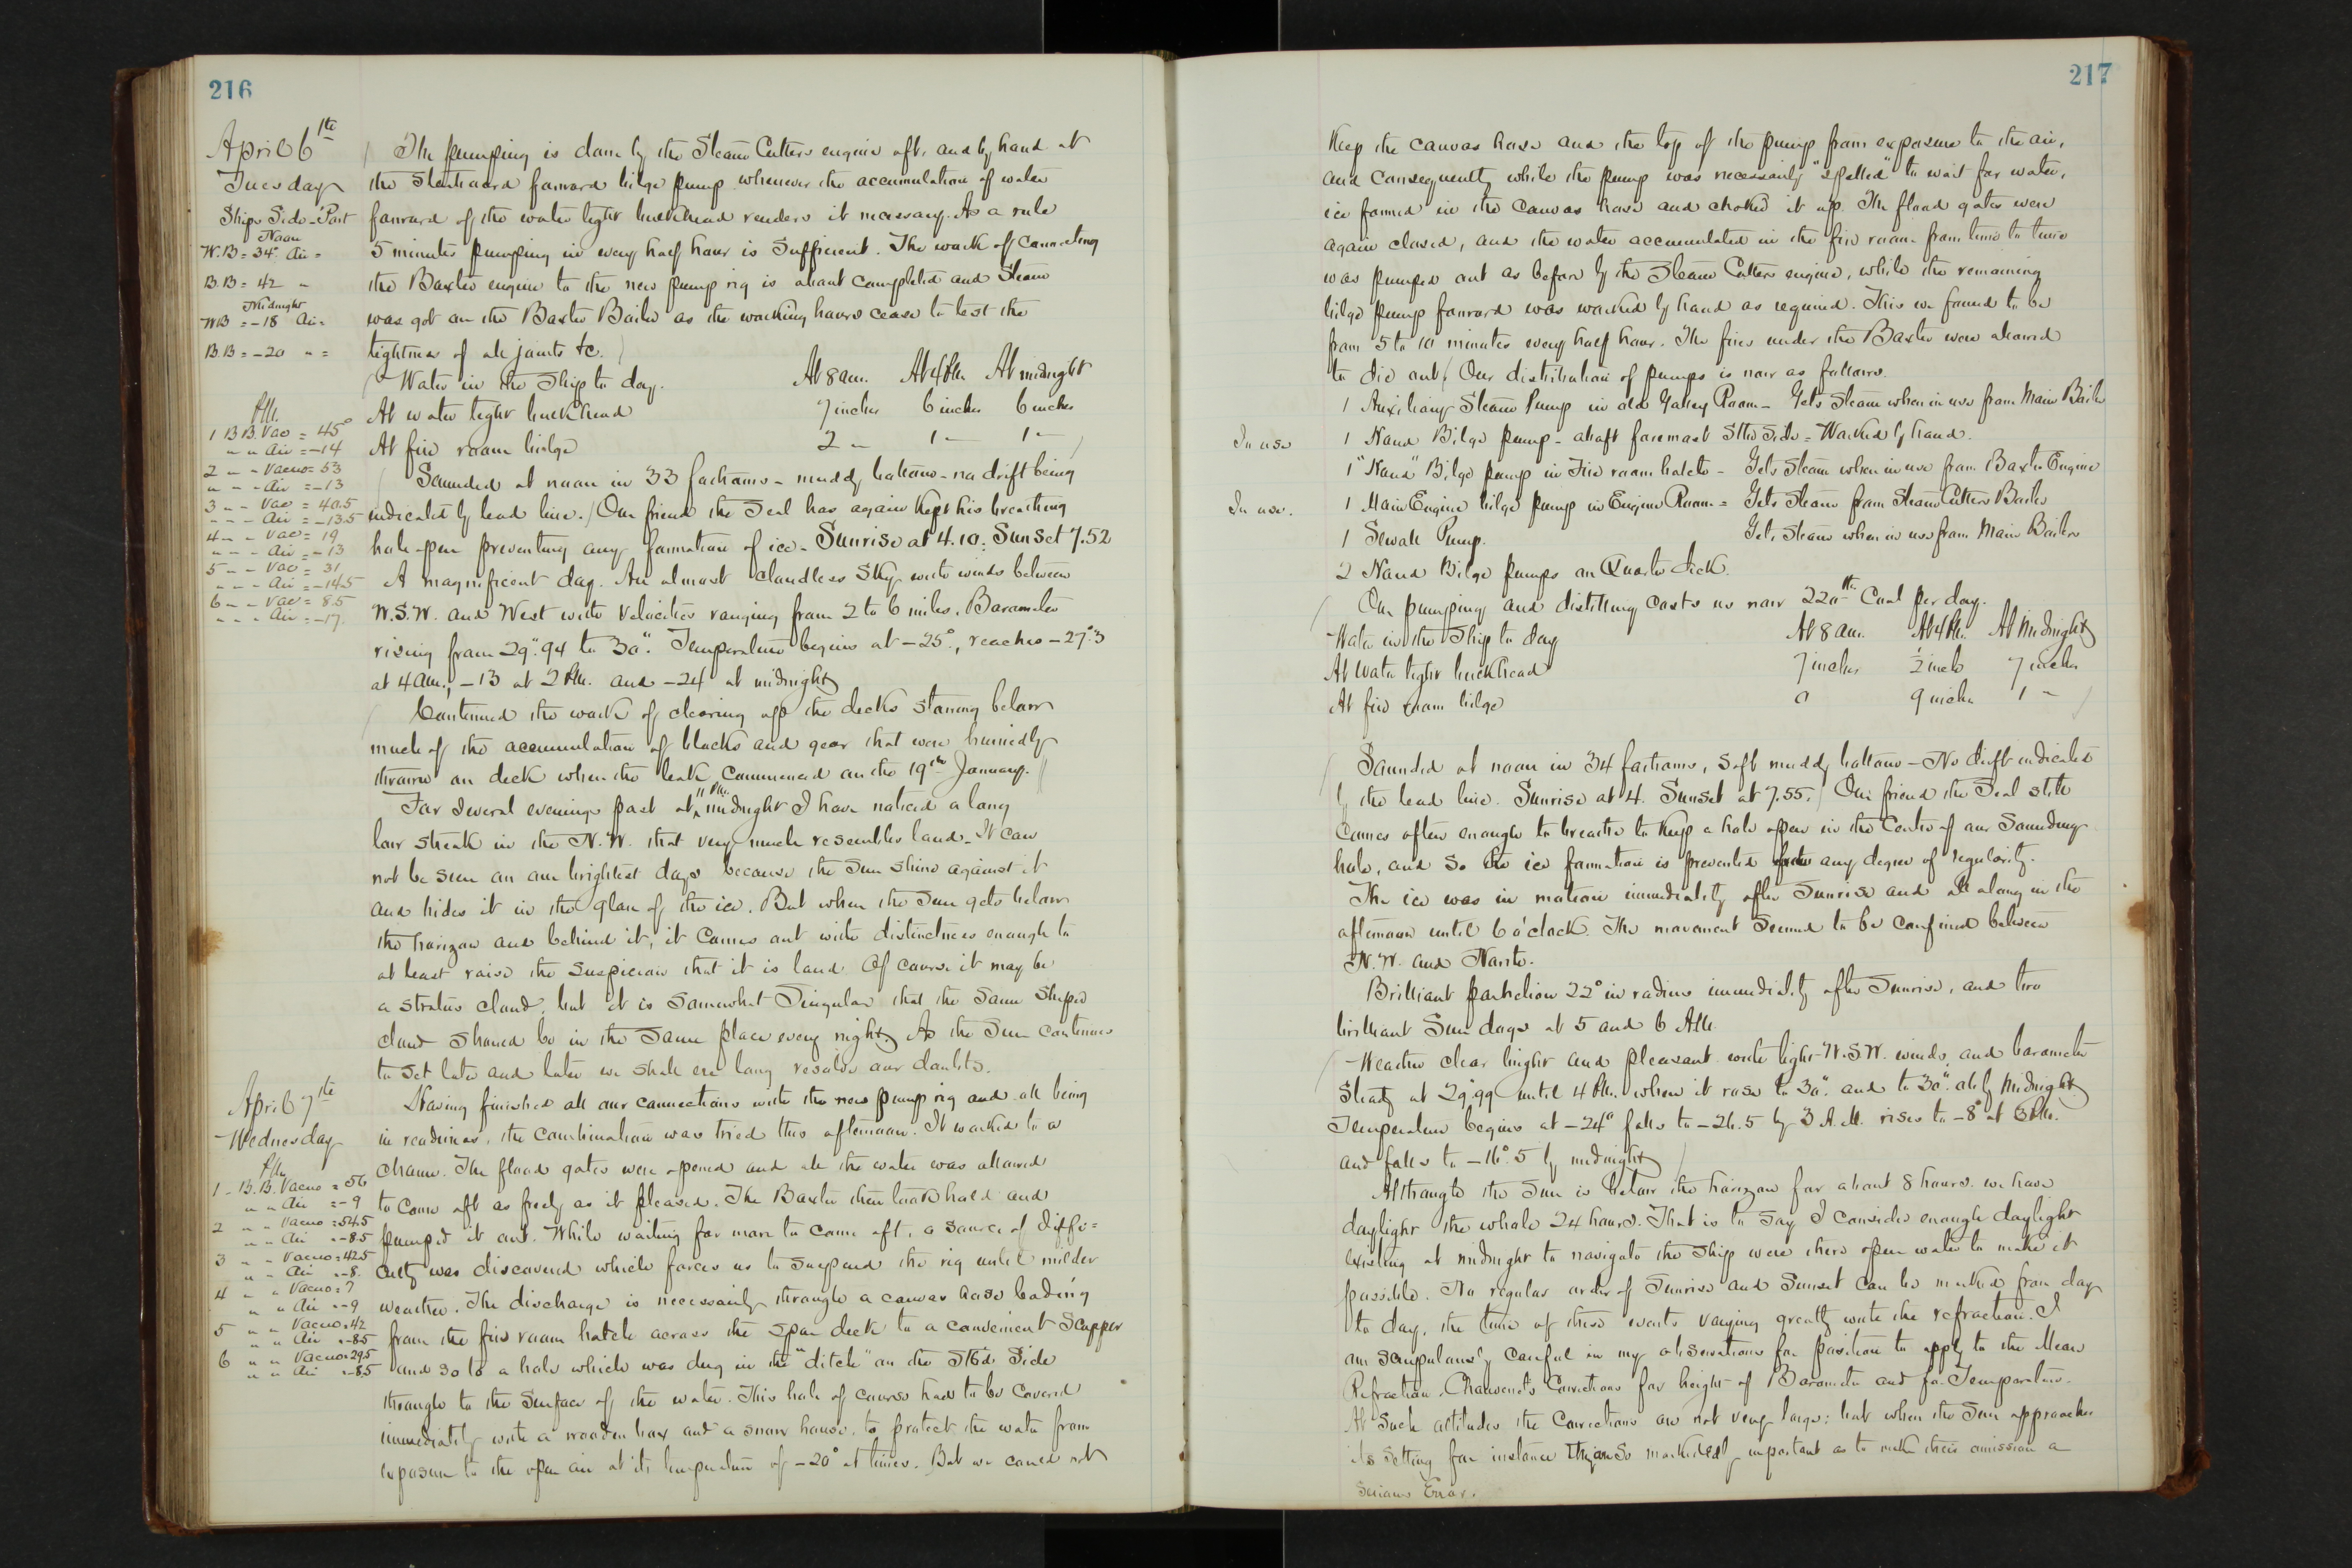 216
April 6th
Tuesday
Ships Side - Port
Noon
W.B = 34° Air =
B.B = 42 "
Midnight
WB = -18 Air =
B.B = -20 " =
The pumping is done by the Steam Cutters engine aft, and by hand at
the Starboard forward bilge pump whenever the accumulation of water
forward of the water tight bulkhead renders it necessary. As a rule
5 minutes pumping in every half hour is sufficient. The work of connecting
the Baxter engine to the new pump rig is about completed and Steam
was got on the Baxter Boiler as the working hours cease to test the
tightness of all joints &c.
Water in the Ship to day. At 8 am. At 4 PM. At midnight
At water tight bulkhead 7 inches 6 inches 6 inches
At fire room bilge 2 " 1 " 1 "
P.M.
1 B B. Vac = 45°
" " Air = -14
2 " " Vacuo = 53
" " " Air = -13
3 " " Vac = 40.5
" " " Air = -13.5
4 " " Vac = 19
" " " Air = -13
5 " " Vac = 31
" " " Air = -14.5
6 " " Vac = 8.5
" " " Air = -17.
Sounded at noon in 33 fathoms - muddy bottom - no drift being
indicated by lead line. Our friend the Seal has again kept his breathing
hole open preventing any formation of ice - Sunrise at 4.10. Sunset 7.52
A magnificent day. An almost cloudless sky with winds between
W.S.W. and West with velocities ranging from 2 to 6 miles. Barometer
rising from 29".94 to 30". Temperature begins at -25°, reaches -27°.3
at 4 am., -13 at 2 PM. and -24 at midnight
Continued the work of clearing up the decks stowing below
much of the accumulation of blocks and gear that were hurriedly
thrown on deck when the leak commenced on the 19th January.
For several evenings past at 11 PM. midnight I have noticed a long
low streak in the N.W. that very much resembles land. It can
not be seen on our brightest days because the Sun shine against it
and hides it in the glare of the ice. But when the Sun gets below
the horizon and behind it, it comes out with distinctness enough to
at least raise the suspicion that it is land. Of course it may be
a stratus cloud, but it is somewhat singular that the same shaped
cloud should be in the same place every night. As the Sun continues
to set later and later we shall ere long resolve our doubts.
April 7th
Wednesday
P.M.
1 - B.B. Vacuo = 56
" " Air = -9
2 " " Vacuo = 54.5
" " Air = -8.5
3 " " Vacuo = 42.5
" " Air = -8.
4 " " Vacuo = ?
" " Air = -9
5 " " Vacuo = 42
" " Air = -8.5
6 " " Vacuo = 29.5
" " Air = -8.5
Having finished all our connections with the new pump rig and all being
in readiness, the combination was tried this afternoon. It worked to a
charm. The flood gates were opened and all the water was allowed
to come aft as freely as it pleased. The Baxter then took hold and
pumped it out. While waiting for more to come aft, a source of diffi=
culty was discovered which forces us to suspend the rig until milder
weather. The discharge is necessarily through a canvas hose leading
from the fire room hatch across the spar deck to a convenient Scupper
and so to a hole which was dug in the "ditch" on the Stbd Side
through to the surface of the water. This hole of course had to be covered
immediately with a wooden box and a snow house, to protect the water from
exposure to the open air at its temperature of -20° at times. But we could not
217
Keep the canvas hose and the top of the pump from exposure to the air,
and consequently while the pump was necessarily "spelled" to wait for water,
ice formed in the canvas hose and choked it up. The flood gates were
again closed, and the water accumulated in the fire room from time to time
was pumped out as before by the Steam Cutters engine, while the remaining
bilge pump forward was worked by hand as required. This we found to be
from 5 to 10 minutes every half hour. The fires under the Baxter were allowed
to die out. Our distribution of pumps is now as follows.
1 Auxiliary Steam Pump in old Galley Room - Gets steam when in use from Main Boiler
In use 1 Hand Bilge pump - abaft foremast Stbd Side = Worked by hand.
1 "Hand" Bilge pump in Fire room hatch - Gets Steam when in use from Baxter Engine
In use. 1 Main Engine bilge pump in Engine Room = Gets steam from Steam Cutters Boiler
1 Sewall Pump. Gets steam when in use from Main Boiler
2 Hand Bilge Pumps on Quarter deck.
Our pumping and distilling costs us now 220 lbs Coal per day.
Water in the Ship to day At 8 am. At 4 PM. At Midnight
At Water tight bulkhead 7 inches ½ inch 7 inches
At fire room bilge 0 9 inches 1 "
Sounded at noon in 34 fathoms, soft muddy bottom - No drift indicated
by the lead line. Sunrise at 4. Sunset at 7.55. Our friend the Seal still
comes often enough to breathe to keep a hole open in the centre of our Sounding
hole, and so the ice formation is prevented any degree of regularity.
The ice was in motion immediately after Sunrise and all along in the
afternoon until 6 o'clock. The movement seemed to be confined between
N.W. and North.
Brilliant parhelion 22° in radius immediately after Sunrise, and two
brilliant Sun dogs at 5 and 6 AM.
Weather clear bright and pleasant with light W.S.W. winds, and barometer
steady at 29".99 until 4 PM. when it rose to 30". and to 30". by Midnight
Temperature begins at -24° falls to -26.5 by 3 A.M. rises to -8° at 3 PM.
and falls to -16°.5 by midnight
Although the Sun is below the horizon for about 8 hours. we have
daylight the whole 24 hours. That is to say I consider enough daylight
existing at midnight to navigate the ship were there open water to make it
possible. No regular order of Sunrise and Sunset can be marked from day
to day, the time of these events varying greatly with the refraction. I
am scrupulously careful in my observations for position to apply to the Mean
Refraction, Chauvenet's Corrections for height of Barometer and for Temperature.
At such altitudes the Corrections are not very large; but when the Sun approaches
its setting for instance they are so markedly important as to make their omission a
serious Error.